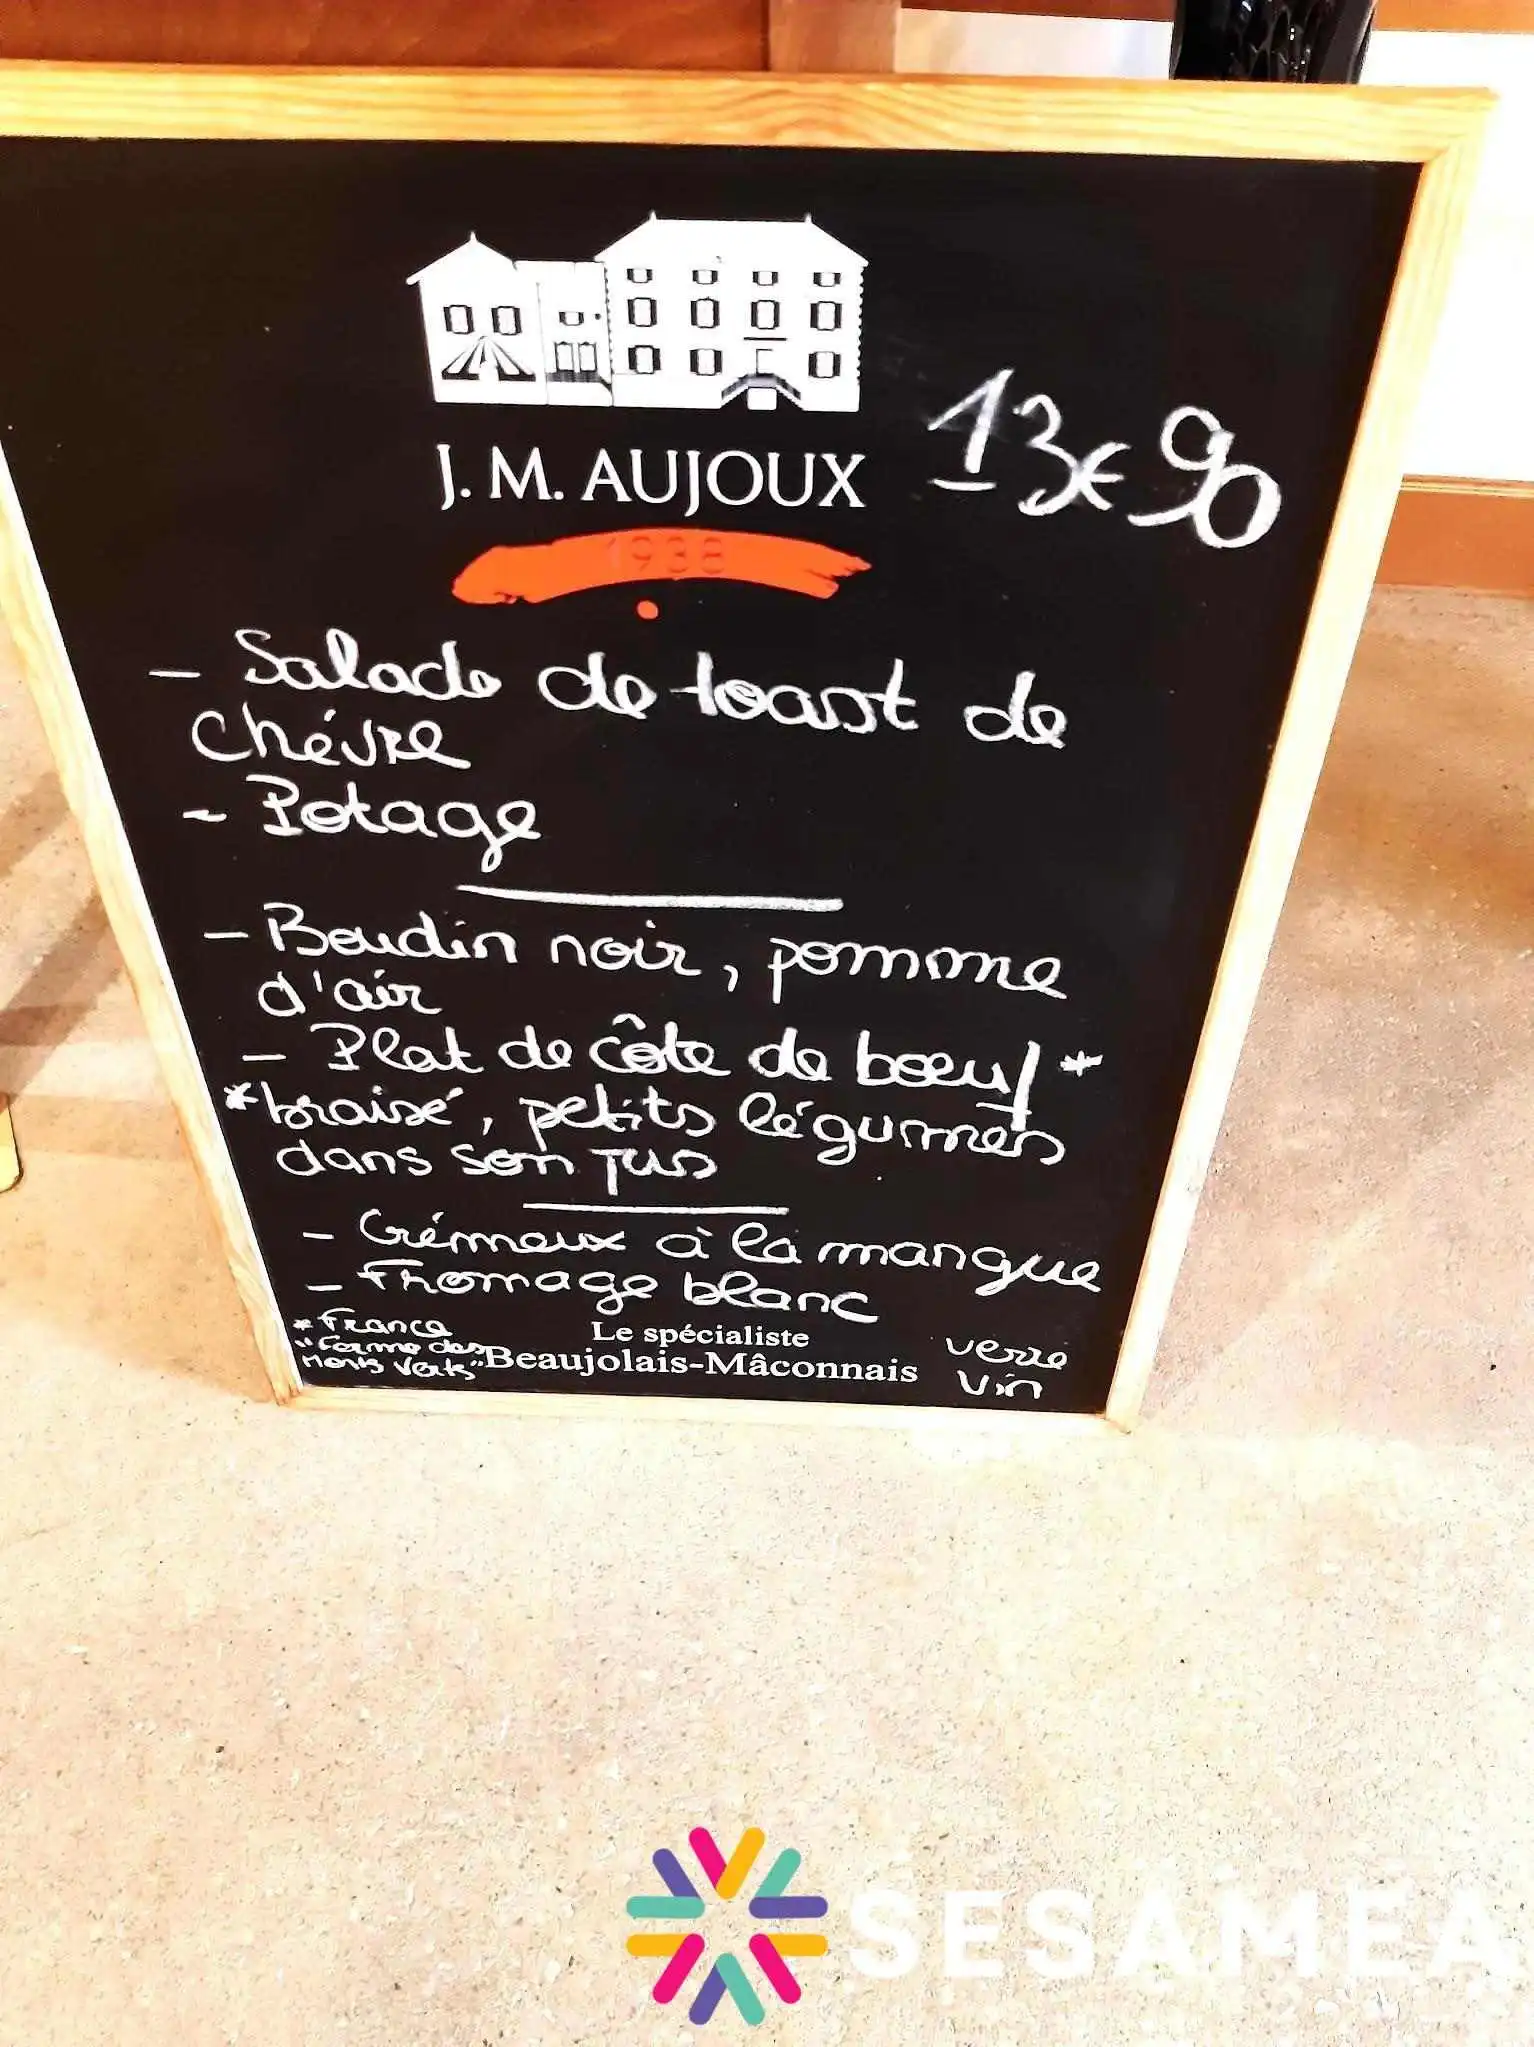 J. M. AUJOUX
13€90
1938
- Salade de toast de
chévre
- Potage
- Boudin noir, pomme
d'air
- Plat de côte de bœuf *
* braisé, petits légumes
dans son jus
- Crémeux à la mangue
- Fromage blanc
* France
"Ferme des
Monts Verts"
Le spécialiste
Beaujolais-Mâconnais
verre
Vin
SESAMEA